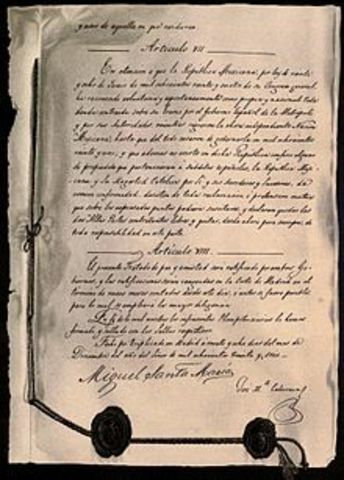 y uno de aquella en que residieren
Artículo VII
En atencion á que la República Mexicana, por ley de veinte
y ocho de Junio de mil ochocientos veinte y cuatro de su Congreso general,
ha reconocido voluntaria y espontaneamente como propia y nacional toda
deuda contraida sobre su erario por el Gobierno español de la Metrópoli
y por sus autoridades mientras rigieron la ahora independiente Nacion
Mexicana, hasta que del todo cesaron de gobernarla en mil ochocientos
veinte y uno; y que ademas no existe en dicha República confisco alguno
de propiedades que pertenecieran á súbditos españoles, la República Mexi-
cana y la Magestad Católica por sí y sus herederos y sucesores, de
comun conformidad, desisten de toda reclamacion ó pretension mutua
que sobre los expresados puntos pudiera suscitarse, y declaran quedar las
dos Altas Partes contratantes libres y quitas, desde ahora para siempre, de
toda responsabilidad en esta parte.
Artículo VIII
El presente Tratado de paz y amistad será ratificado por ambos Go-
biernos, y las ratificaciones serán cangeadas en la Corte de Madrid en el
término de nueve meses contados desde este dia, ó antes si fuere posible,
para lo cual se empleará la mayor diligencia.
En fé de lo cual nosotros los infrascritos Plenipotenciarios lo hemos
firmado y sellado con los sellos respectivos.
Fecho por triplicado en Madrid á veinte y ocho dias del mes de
Diciembre del año del Señor de mil ochocientos treinta y seis.
Miguel Santa María
José Mª Calatrava